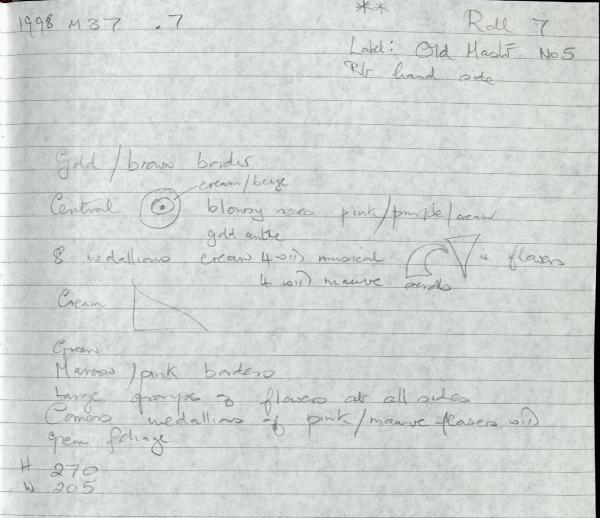 1998 M37 .7
**
Roll 7
Label: Old Mast No 5
Rt hand side
Gold / brown border
cream/beige
Central blowsy roses pink/purple/cream
gold centre
8 medallions cream 4 with musical + flowers
4 with mauve
Cream
Green
Maroon / pink borders
Large groups of flowers at all sides
Corners medallions of pink/mauve flowers with
green foliage
H 270
W 205